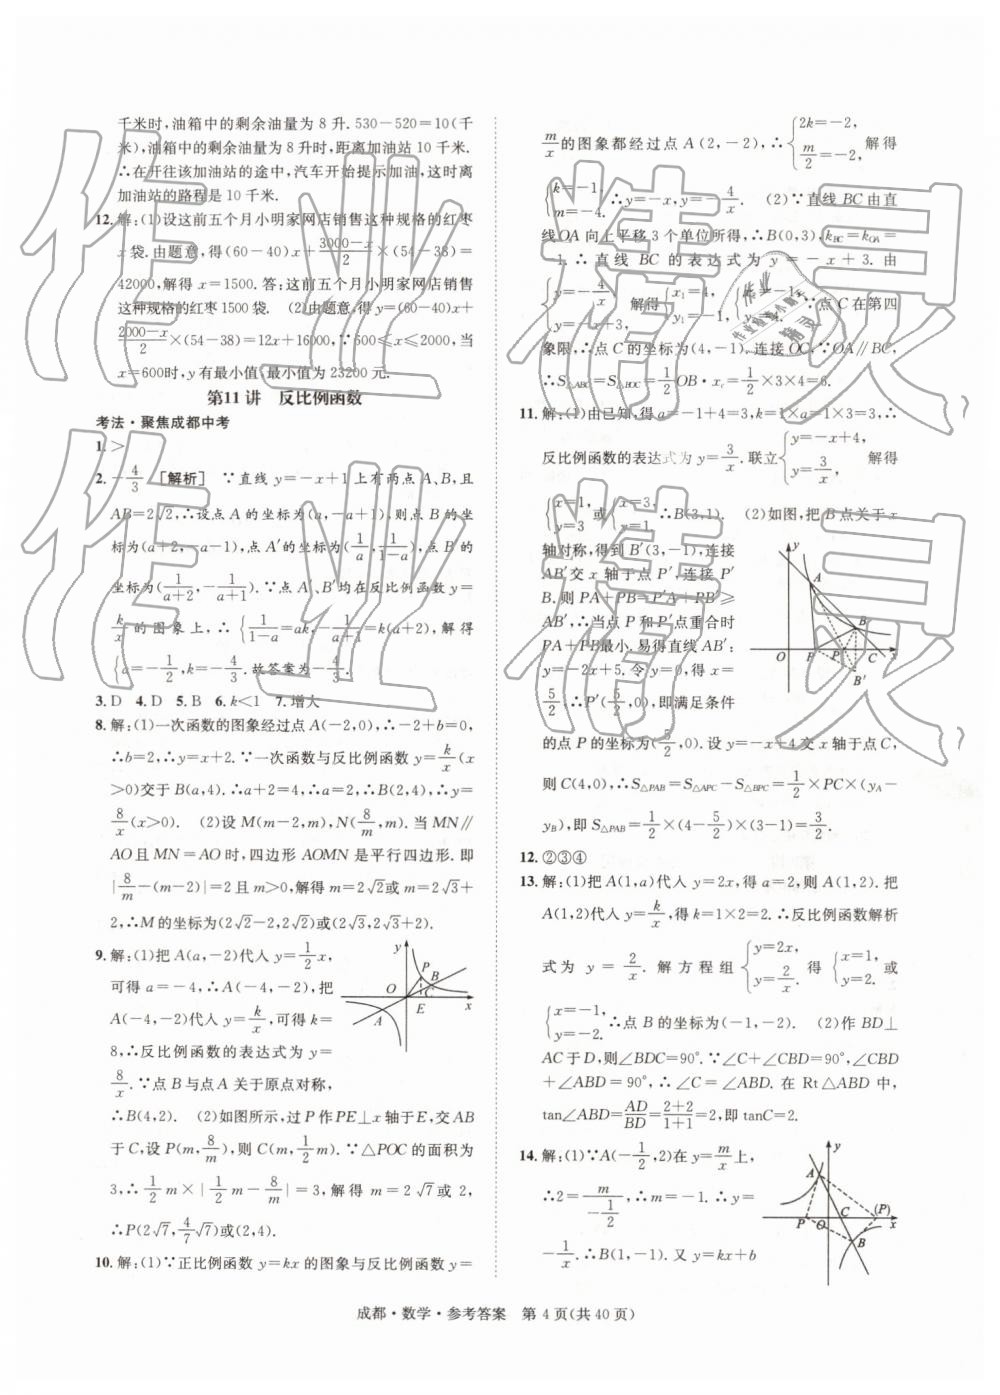 千米时,油箱中的剩余油量为 8 升. 530-520=10(千
米),油箱中的剩余油量为 8 升时,距离加油站 10 千米.
∴在开往该加油站的途中,汽车开始提示加油,这时离
加油站的路程是 10 千米.
12. 解:(1)设这前五个月小明家网店销售这种规格的红枣
x 袋. 由题意,得(60-40)x+(3000-x)/2×(54-38)=
42000,解得 x=1500. 答:这前五个月小明家网店销售
这种规格的红枣 1500 袋. (2)由题意,得 y=(60-40)x+
(2000-x)/2×(54-38)=12x+16000,∵600≤x≤2000,当
x=600时,y 有最小值,最小值为 23200 元.
第11讲 反比例函数
考法·聚焦成都中考
1. >
2. -4/3 [解析] ∵直线 y=-x+1 上有两点 A、B,且
AB=2√2,∴设点 A 的坐标为(a,-a+1),则点 B 的坐
标为(a+2,-a-1),点 A′的坐标为(1/a,1/(1-a)),点 B′的
坐标为(1/(a+2),-1/(a+1)). ∵点 A′、B′均在反比例函数 y=
k/x 的图象上,∴{1/(1-a)=ak,-1/(a+1)=k(a+2),解得
{a=-1/2,k=-4/3. 故答案为-4/3.
3. D 4. D 5. B 6. k<1 7. 增大
8. 解:(1)一次函数的图象经过点 A(-2,0),∴-2+b=0,
∴b=2,∴y=x+2. ∵一次函数与反比例函数 y=k/x(x
>0)交于 B(a,4). ∴a+2=4,∴a=2,∴B(2,4),∴y=
8/x(x>0). (2)设 M(m-2,m),N(8/m,m). 当 MN∥
AO 且 MN=AO 时,四边形 AOMN 是平行四边形. 即
|8/m-(m-2)|=2 且 m>0,解得 m=2√2或 m=2√3+
2,∴M 的坐标为(2√2-2,2√2)或(2√3,2√3+2).
9. 解:(1)把 A(a,-2)代入 y=1/2x,
可得 a=-4,∴A(-4,-2),把
A(-4,-2)代入 y=k/x,可得 k=
8,∴反比例函数的表达式为 y=
8/x. ∵点 B 与点 A 关于原点对称,
∴B(4,2). (2)如图所示,过 P 作 PE⊥x 轴于 E,交 AB
于 C,设 P(m,8/m),则 C(m,1/2m). ∵△POC 的面积为
3,∴1/2m×|1/2m-8/m|=3,解得 m=2√7或 2,
∴P(2√7,4/7√7)或(2,4).
y
P
B
O
C
x
A
E
10. 解:(1)∵正比例函数 y=kx 的图象与反比例函数 y=
m/x的图象都经过点 A(2,-2),∴{2k=-2,m/2=-2,解得
{k=-1,m=-4. ∴y=-x,y=-4/x. (2)∵直线 BC 由直
线 OA 向上平移 3 个单位所得,∴B(0,3),kBC=kOA=
-1,∴直线 BC 的表达式为 y=-x+3. 由
{y=-4/x,y=-x+3,解得{x₁=4,y₁=-1, ∵点 C 在第四
象限,∴点 C 的坐标为(4,-1),连接 OC,∵OA∥BC,
∴S△ABC=S△BOC=1/2OB·xc=1/2×3×4=6.
11. 解:(1)由已知,得 a=-1+4=3,k=1×a=1×3=3,∴
反比例函数的表达式为 y=3/x. 联立{y=-x+4,y=3/x,解得
{x=1,y=3或{x=3,y=1,∴B(3,1). (2)如图,把 B 点关于 x
轴对称,得到 B′(3,-1),连接
AB′交 x 轴于点 P′,连接 P′
B. 则 PA+PB=P′A+P′B≥
AB′,∴当点 P 和 P′点重合时
PA+PB最小. 易得直线 AB′:
y=-2x+5. 令 y=0,得 x=
5/2. ∴P′(5/2,0),即满足条件
的点 P 的坐标为(5/2,0). 设 y=-x+4 交 x 轴于点 C,
则 C(4,0),∴S△PAB=S△APC-S△BPC=1/2×PC×(yA-
yB),即 S△PAB=1/2×(4-5/2)×(3-1)=3/2.
y
A
B
O
P
P′
C
x
B′
12. ②③④
13. 解:(1)把 A(1,a)代入 y=2x,得 a=2,则 A(1,2). 把
A(1,2)代入 y=k/x,得 k=1×2=2. ∴反比例函数解析
式为 y=2/x. 解方程组{y=2x,y=2/x得{x=1,y=2.或
{x=-1,y=-2. ∴点 B 的坐标为(-1,-2). (2)作 BD⊥
AC 于 D,则∠BDC=90°. ∵∠C+∠CBD=90°,∠CBD
+∠ABD=90°,∴∠C=∠ABD. 在 Rt△ABD 中,
tan∠ABD=AD/BD=(2+2)/(1+1)=2,即 tanC=2.
14. 解:(1)∵A(-1/2,2)在 y=m/x上,
∴2=m/(-1/2). ∴m=-1. ∴y=
-1/x. ∴B(1,-1). 又∵y=kx+b
y
A
P
O
C
(P)
x
B
成都·数学·参考答案 第 4 页(共 40 页)
作业精灵
作业精灵